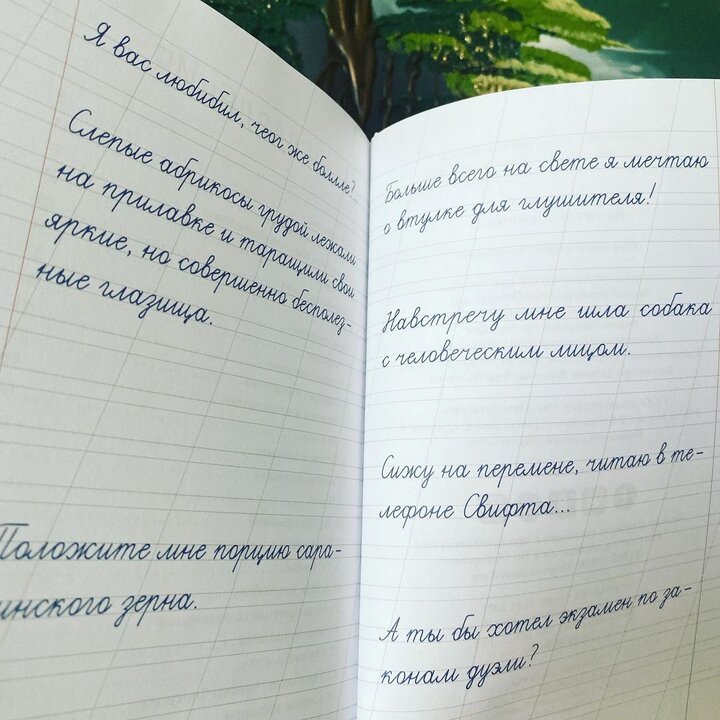 Я вас любибил, чеог же боллле?..
Слепые абрикосы грудой лежали
на прилавке и таращили свои
яркие, но совершенно бесполез-
ные глазища.
Положите мне порцию сара-
инского зерна.
Больше всего на свете я мечтаю
о втулке для глушителя!
Навстречу мне шла собака
с человеческим лицом.
Сижу на перемене, читаю в те-
лефоне Свифта...
А ты бы хотел экзамен по за-
конам дуэли?